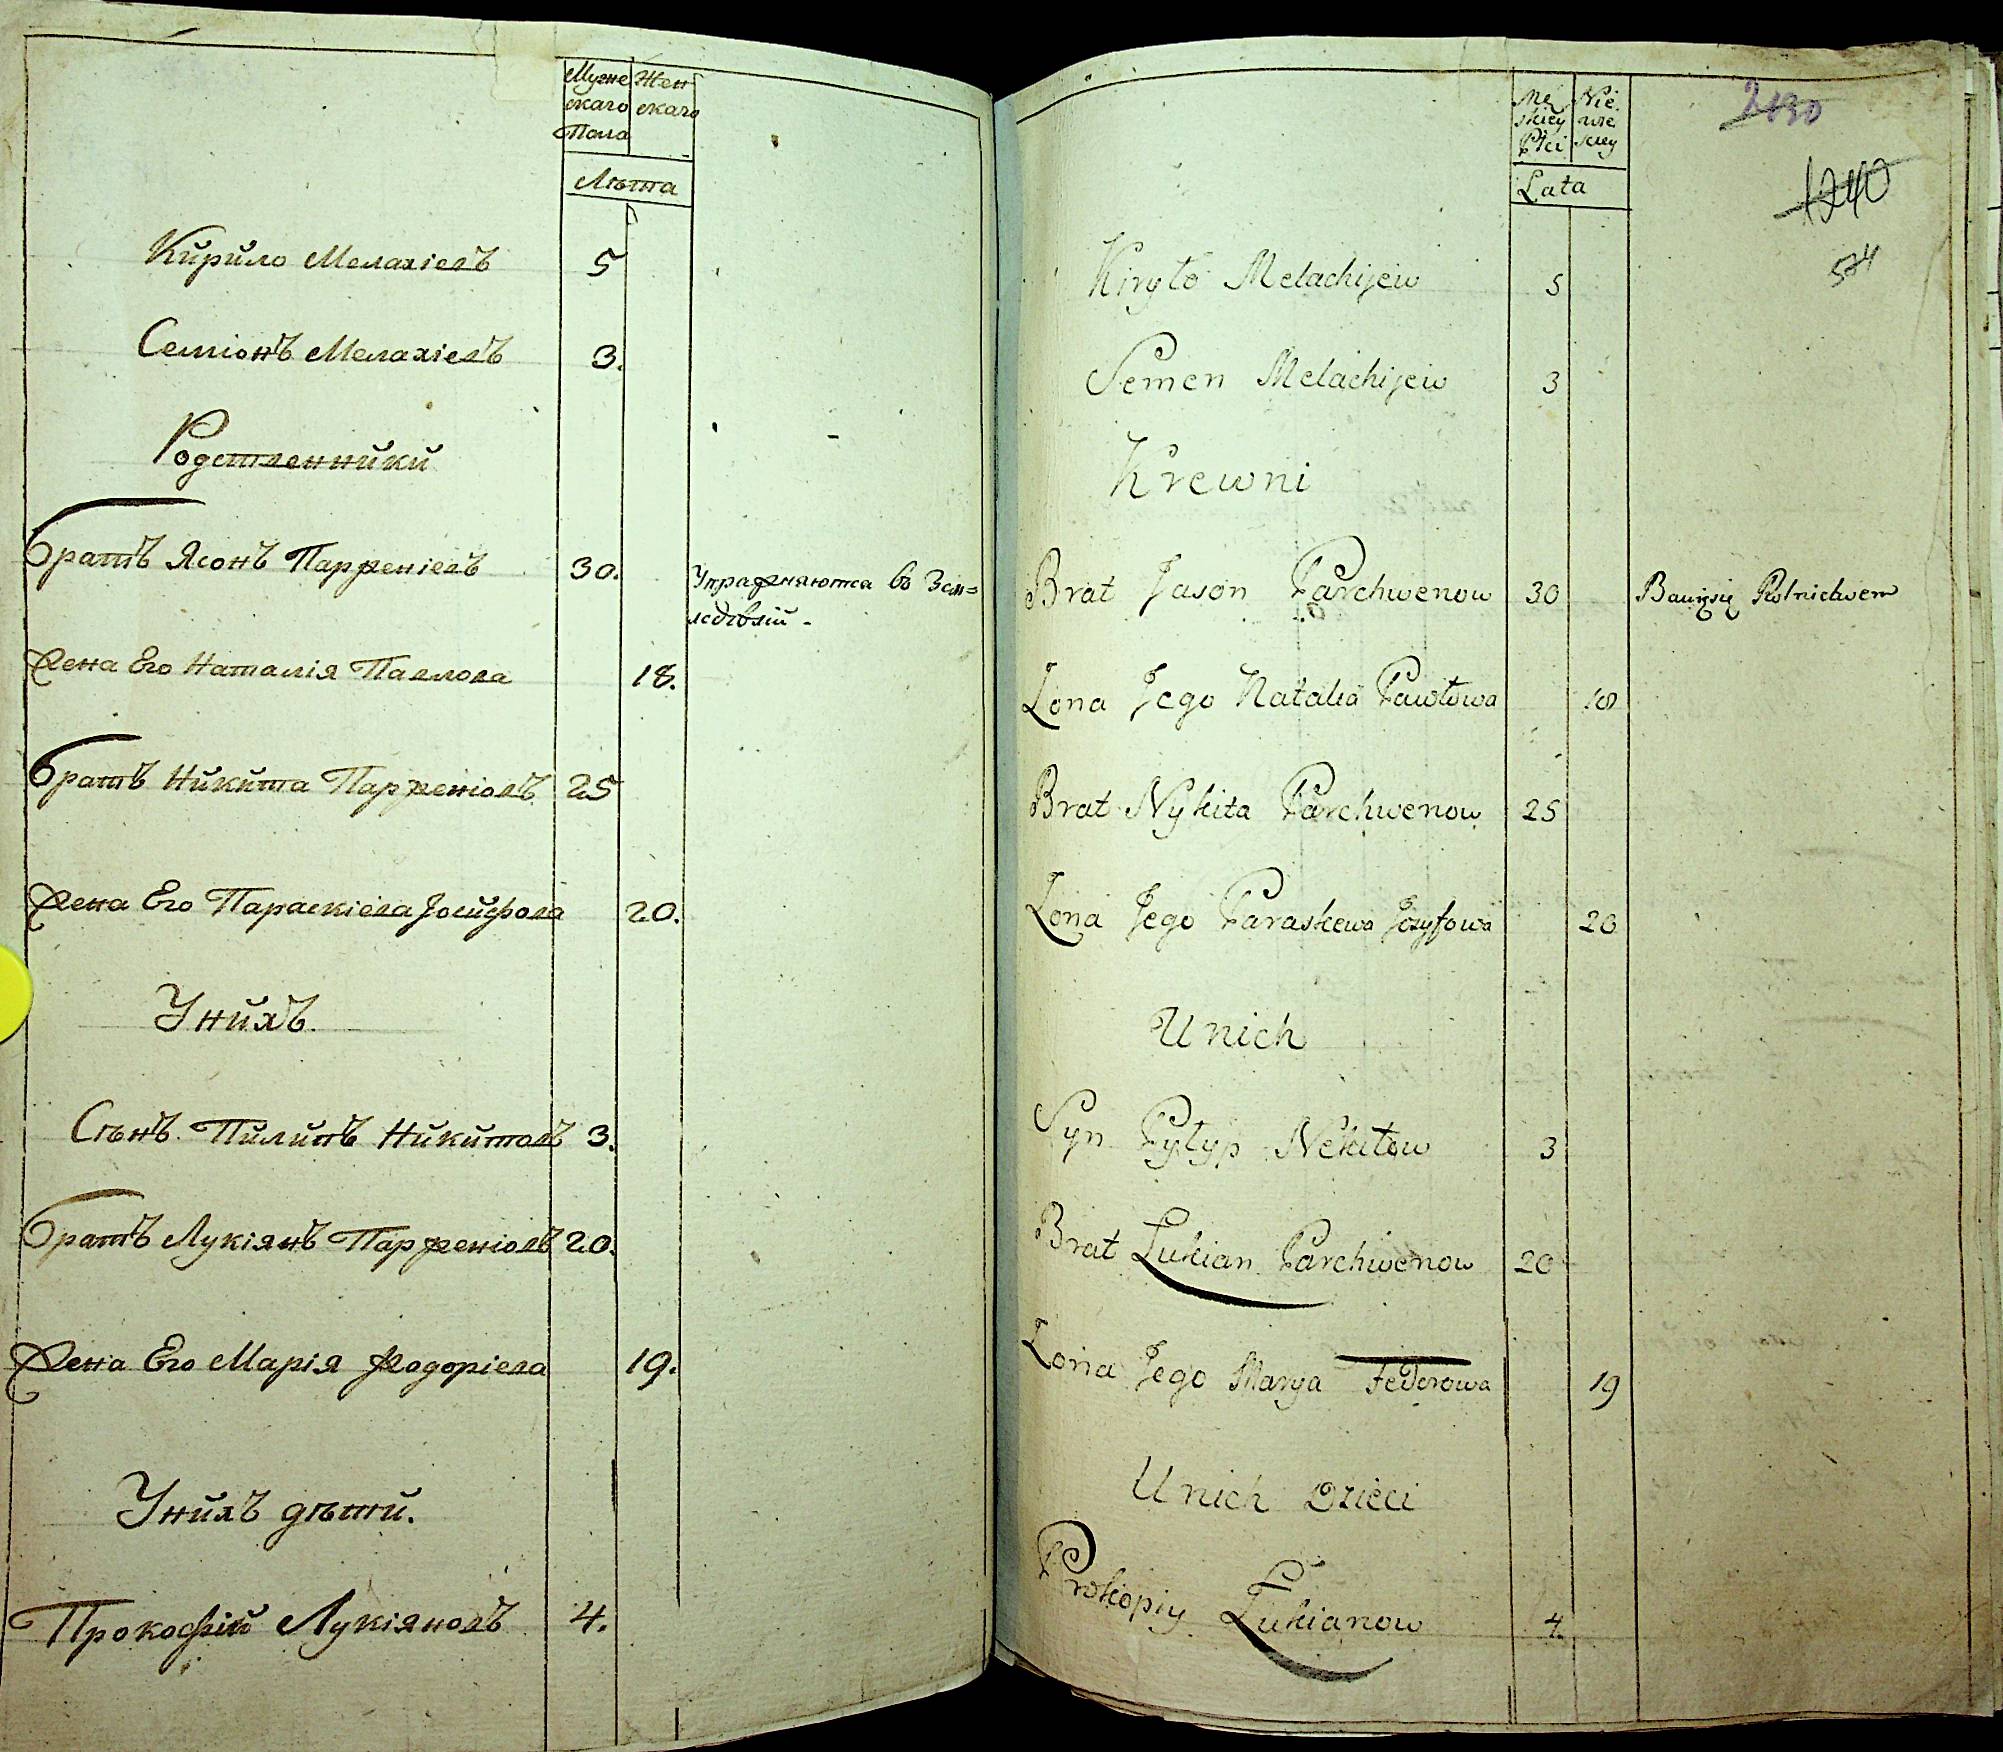 Муже Жен
скаго скаго
Пола
Лѣта
Кирило Мелахіевъ 5
Семіонъ Мелахіевъ 3.
Родственники
братъ Ясонъ Парѳеніевъ 30. Упражняются въ Зем=
ледѣлій -
Жена Его Наталія Павлова 18.
братъ Никита Парѳеніовъ 25
Жена Его Параскіева Іосифова 20.
Унихъ.
Сынъ Пилипъ Никитовъ 3.
братъ Лукіянъ Парѳеніовъ 20.
Жена Его Марія Ѳеодоріева 19.
Унихъ дѣти.
Прокофій Лукіяновъ 4.
2130
1240
574
Mę Nie
skiey wie
Płci skiey
Lata
Kiryło Melachijew 5
Semen Melachijew 3
Krewni
Brat Jason Parchwenow 30 Bawięsię Rolnictwem
Żona Jego Natalia Pawłowa 18
Brat Nykita Parchwenow 25
Żona Jego Paraskewa Jozyfowa 20
Unich
Syn Pyłyp Nekitow 3
Brat Łukian Parchwenow 20
Żona Jego Marya Fedorowa 19
Unich Dzieci
Prokopiy Łukianow 4.